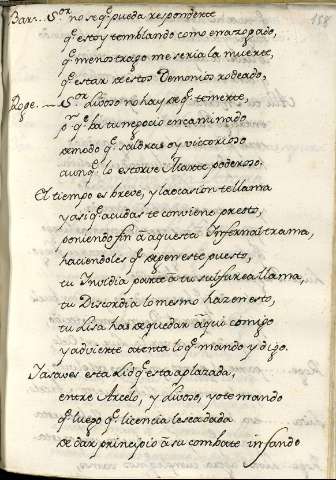 Bars. S.or no se q̃ pueda responderte
q̃ estoy temblando como en azogado,
q̃ menos trago me seria la muerte,
q̃ estar destos Demonios rodeado,
Lope. S.or Liboso no hay de q̃ temerte,
p.r q̃ ba tu negocio encaminado
de modo q̃ saldras oy victorioso
aunq̃ lo estorve Marte poderoso.
El tiempo es breve, y la ocasion te llama
y asi q̃ acudas te conviene presto,
poniendo fin â aquesta Infernal trama,
haciendoles q̃ dejen este puesto,
tu Invidia parte â tu sulfurea llama,
tu Discordia lo mesmo haz en esto,
tu Lisa has de quedar aqui comigo
y advierte atenta lo q̃ mando y digo.
Ia saves esta Lid q̃ esta aplazada,
entre Arcelo, y Liboso, yo te mando
q̃ luego q̃ licencia les ea dada
de dar principio â su combate infando